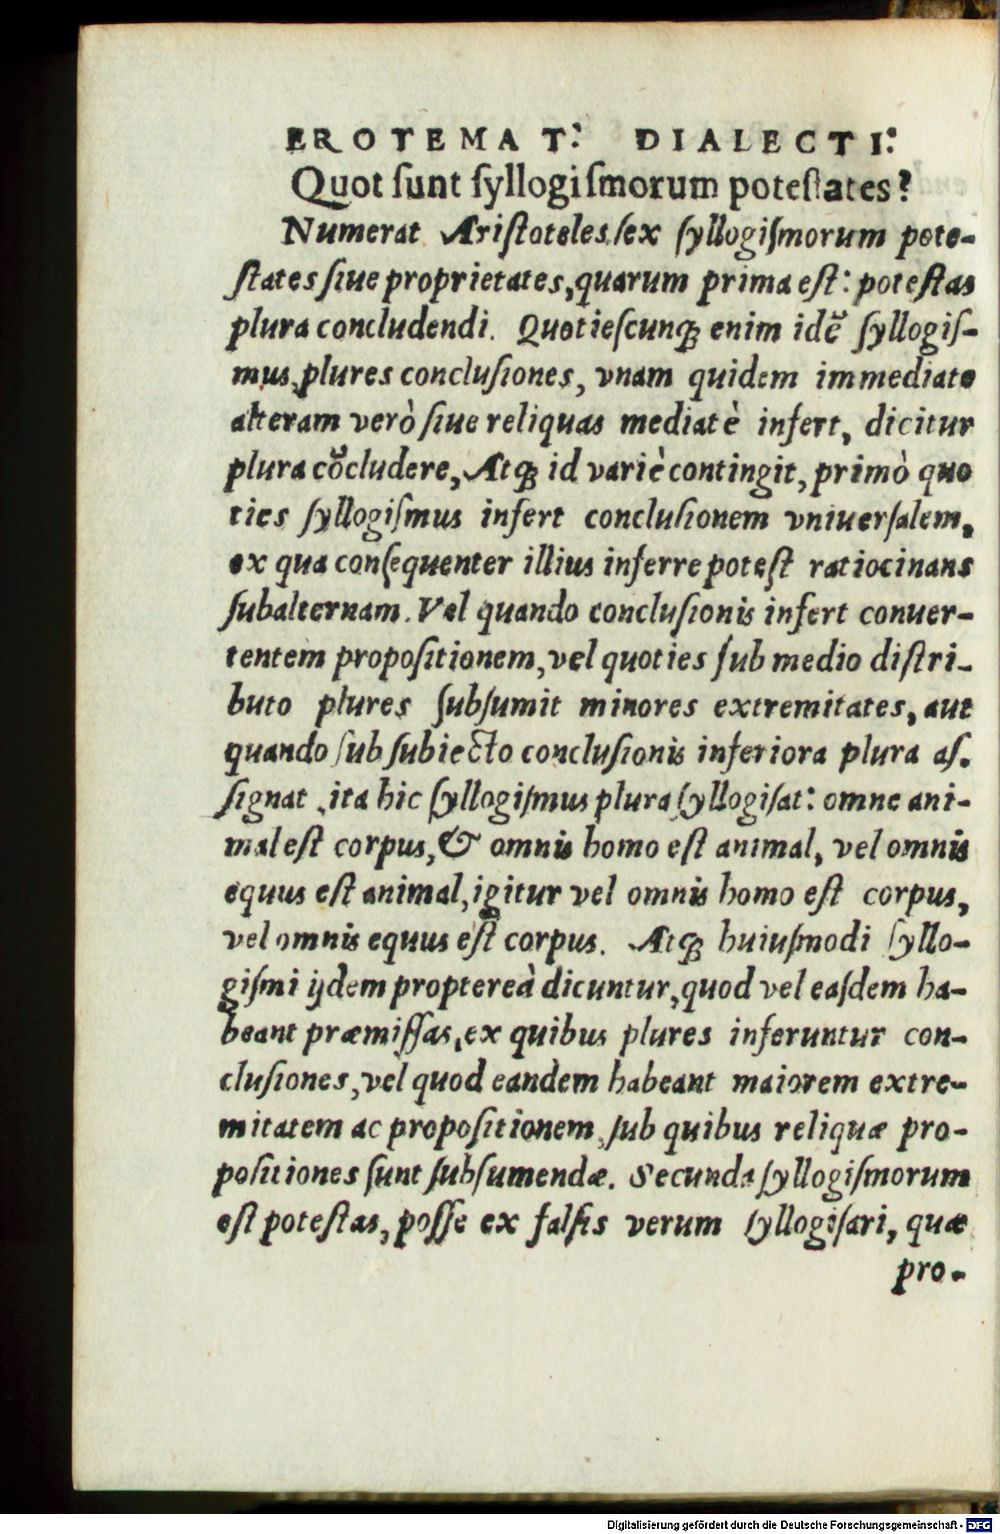 EROTEMAT: DIALECTI:
Quot ſunt ſyllogiſmorum poteſtates?
Numerat Ariſtoteles ſex ſyllogiſmorum pote-
ſtates ſiue proprietates, quarum prima eſt: poteſtas
plura concludendi. Quotieſcunqꝫ enim idẽ ſyllogiſ-
mus plures concluſiones, vnam quidem immediate
alteram verò ſiue reliquas mediatè infert, dicitur
plura cõcludere, Atqꝫ id variè contingit, primò quo
ties ſyllogiſmus infert concluſionem vniuerſalem,
ex qua conſequenter illius inferre poteſt ratiocinans
ſubalternam. Vel quando concluſionis infert conuer-
tentem propoſitionem, vel quoties ſub medio diſtri-
buto plures ſubſumit minores extremitates, aut
quando ſub ſubiecto concluſionis inferiora plura aſ-
ſignat, ita hic ſyllogiſmus plura ſyllogiſat: omne ani-
mal eſt corpus, & omnis homo eſt animal, vel omnis
equus eſt animal, igitur vel omnis homo eſt corpus,
vel omnis equus eſt corpus. Atqꝫ huiuſmodi ſyllo-
giſmi ijdem propтereà dicuntur, quod vel eaſdem ha-
beant præmiſſas, ex quibus plures inferuntur con-
cluſiones, vel quod eandem habeant maiorem extre-
mitatem ac propoſitionem, ſub quibus reliquæ pro-
poſitiones ſunt ſubſumendæ. Secunda ſyllogiſmorum
eſt poteſtas, poſſe ex falſis verum ſyllogiſari, quæ
pro-
Digitalisierung gefördert durch die Deutsche Forschungsgemeinschaft - DFG